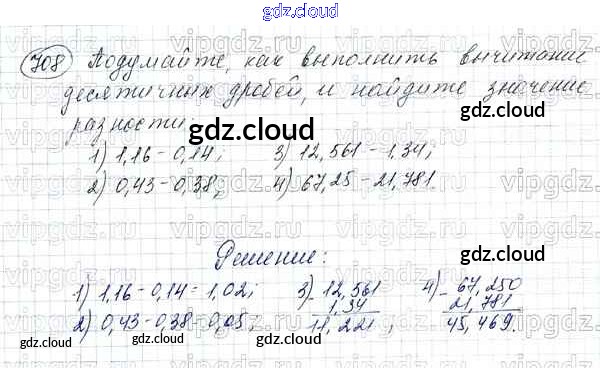 gdz.cloud
708 Подумайте, как выполнить вычитание
десятичных дробей, и найдите значение
разности:
gdz.cloud
1) 1,16 - 0,14; 3) 12,561 - 1,34;
2) 0,43 - 0,38; 4) 67,25 - 21,781.
gdz.cloud gdz.cloud
Решение:
gdz.cloud
1) 1,16 - 0,14 = 1,02; 3) - 12,561 4) - 67,250
2) 0,43 - 0,38 = 0,05; 1,34 21,781
11,221; 45,469.
gdz.cloud gdz.cloud gdz.cloud